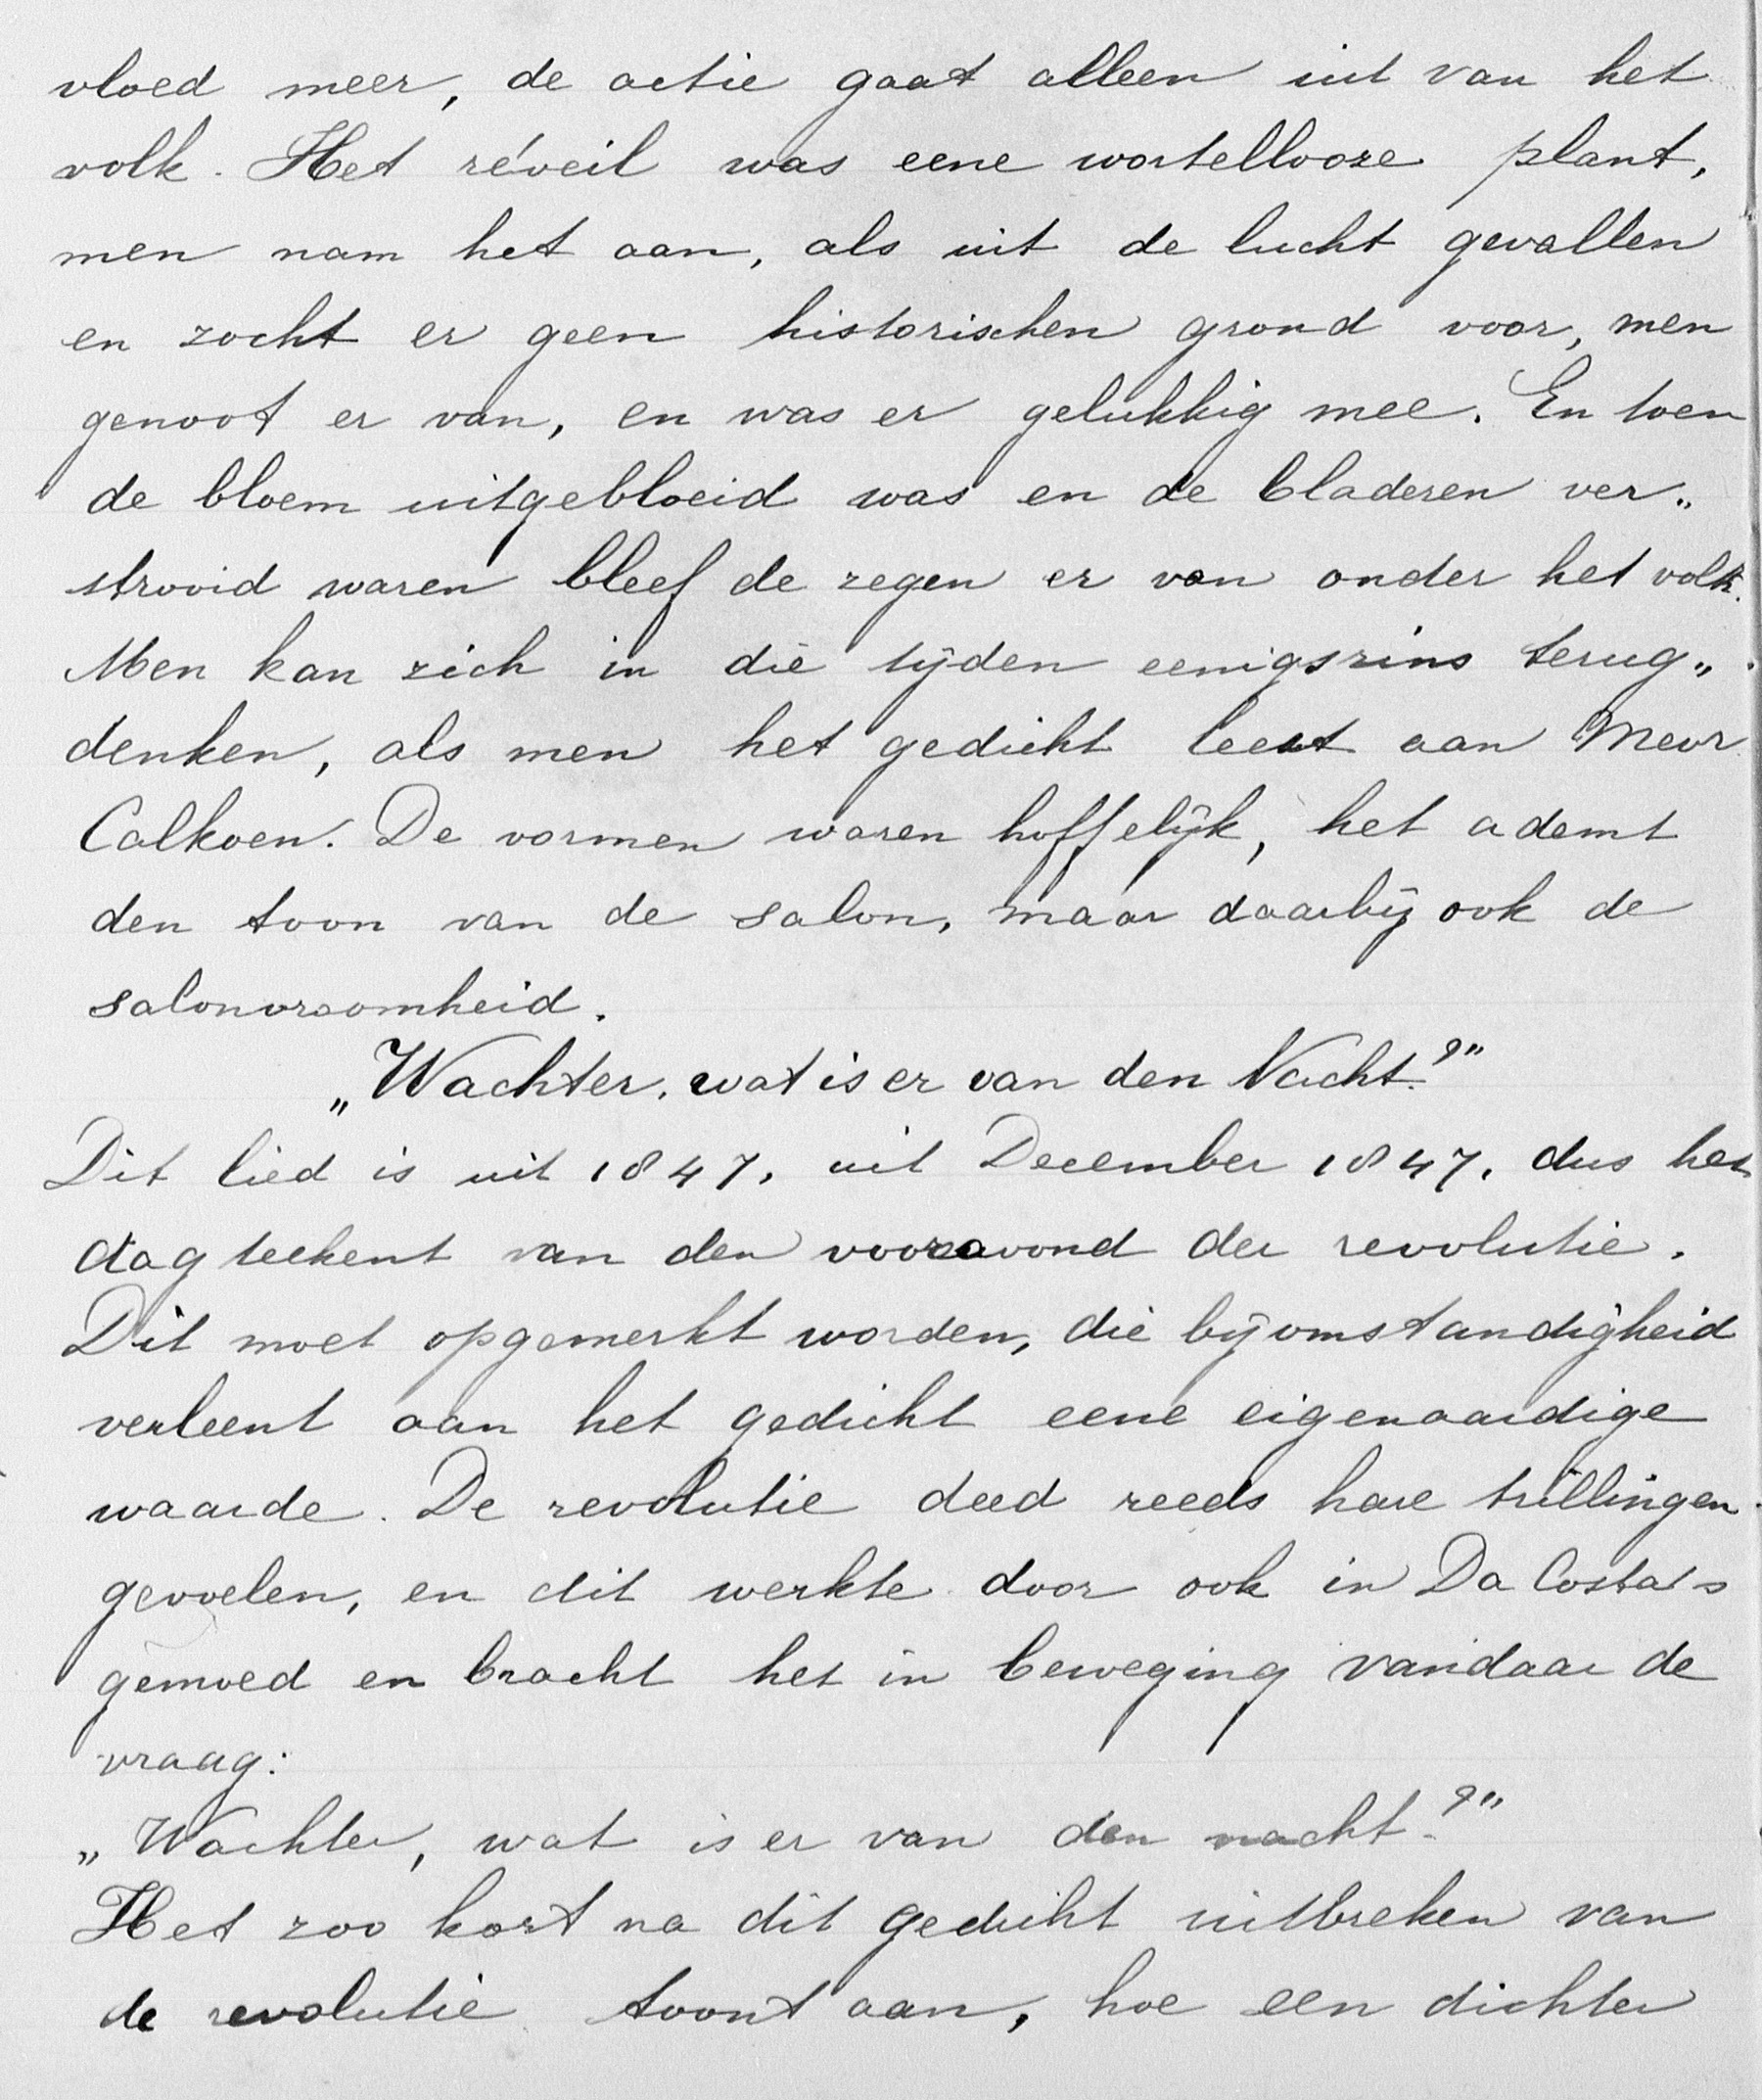 vloed meer, de actie gaat alleen uit van het
volk. Het réveil was eene wortellooze plant,
men nam het aan, als uit de lucht gevallen
en zocht er geen historischen grond voor, men
genoot er van, en was er gelukkig mee. En toen
de bloem uitgebloeid was en de bladeren ver„
strooid waren bleef de zegen er van onder het volk.
Men kan zich in die tijden eenigszins terug„
denken, als men het gedicht leest aan Mevr
Calkoen. De vormen waren hoffelijk, het ademt
den toon van de salon, maar daarbij ook de
salonvroomheid.
„Wachter, wat is er van den Nacht?"
Dit lied is uit 1847, uit December 1847, dus het
dagteekent van den vooravond der revolutie.
Dit moet opgemerkt worden, die bijomstandigheid
verleent aan het gedicht eene eigenaardige
waarde. De revolutie deed reeds hare trillingen
gevoelen, en dit werkte door ook in Da Costa's
gemoed en bracht het in beweging vandaar de
vraag:
„Wachter, wat is er van den nacht?"
Het zoo kort na dit gedicht uitbreken van
de revolutie toont aan, hoe een dichter